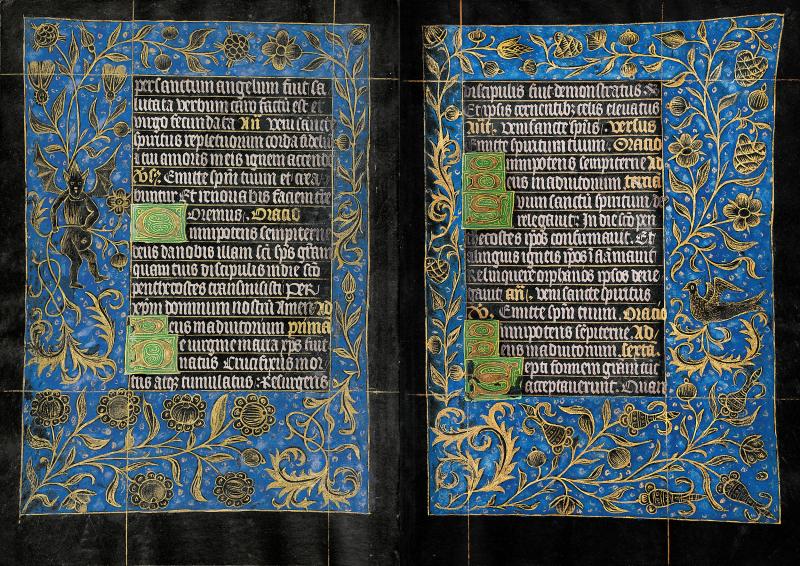 per sanctum angelum fuit sa
lutata verbum caro factu est et
virgo fecundata Añ Veni sancte
spiritus reple tuorum corda fideli
i tui amoris in eis ignem accende
V/. Emitte spm tuum et crea
buntur Et renovabis faciem tre
Oremus. Oracio
Omnipotens sempiterne
deus da nobis illam sci sps gram
quam tuis discipulis in die sco
penthecostes transmisisti Per
xpm dominum nostru Amen Ad
Deus in adiutorium prima
De virgine maria xps fuit
natus Crucifixus mor
tus atqz tumulatus : Resurgens
discipulis fuit demonstratus
Et ipsis cernentibz celis elevatus
Añt. Veni sancte spus . versus
Emitte spiritum tuum. Oracio
Omnipotens sempiterne Ad
Deus in adiutorium tercia
Suum sanctu spiritum de
relegavit In die sco pen
thecostes ipos confirmavit. Et
a linguis igneis ipos iamavit
Relinquere orphanos ipsos dene
gavit añ. Veni sancte spiritus
V. Emitte spm tuum. Oracio
Omnipotens sepiterne Ad
Deus in adiutorium. sexta.
Septi formem gram tuc
acceptaverunt. Quan